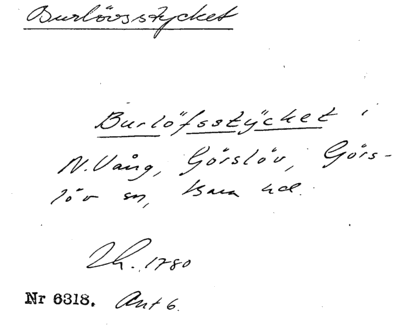 Burlövsstycket
Burlöfsstÿcket i
N. Vång, Görslöv, Görs-
löv sn, Bara hd.
Lh. 1780
Nr 6318. Akt 6.